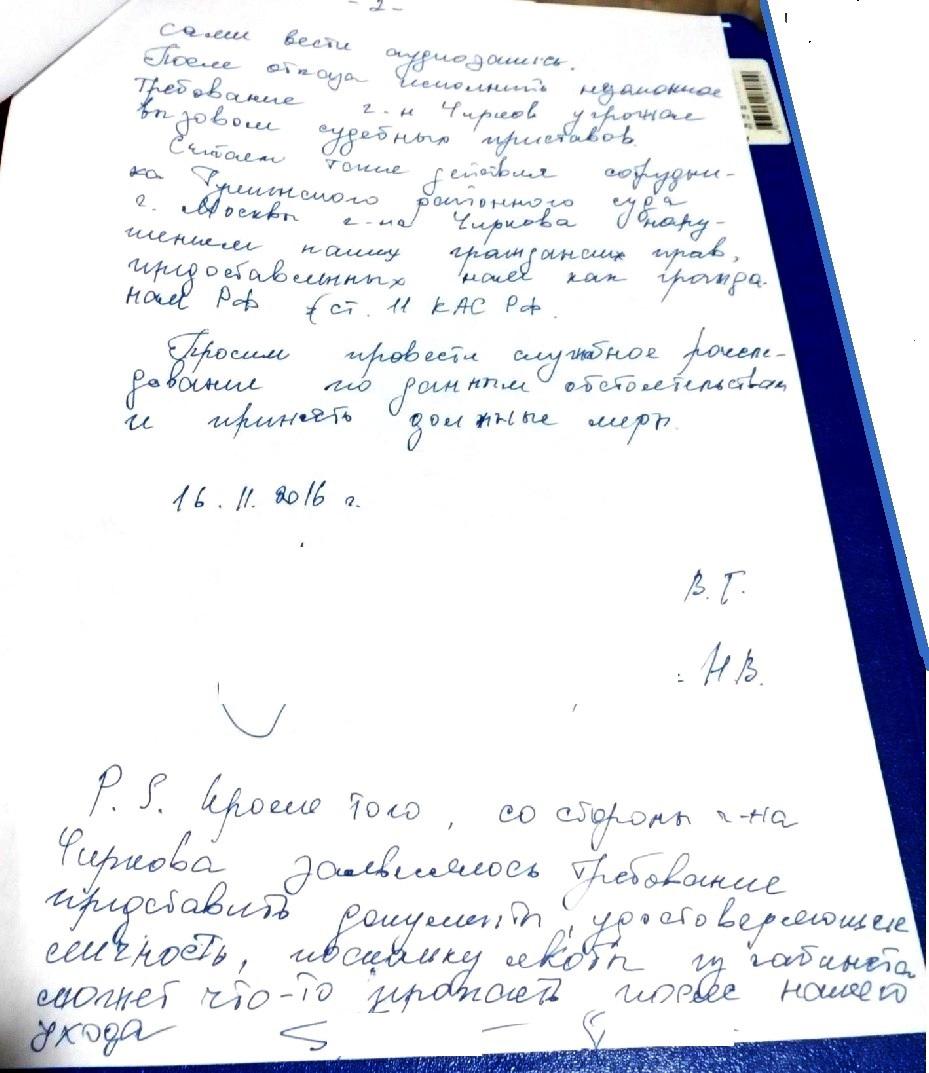 - 2 -
сами вести аудиозапись.
После отказа исполнить незаконное
требование г-н Чирков угрожал
вызовом судебных приставов.
Считаем такие действия сотрудни-
ка Тушинского районного суда
г. Москвы г-на Чиркова нару-
шением наших гражданских прав,
предоставленных нам как гражда-
нам РФ (ст. 11 КАС РФ.
Просим провести служебное рассле-
дование по данным обстоятельствам
и принять должные меры.
16.11.2016 г.
В.Т.
Н.В.
P.S. Кроме того, со стороны г-на
Чиркова заявлялось требование
представить документы, удостоверяющие
личность, поскольку якобы из кабинета
может что-то пропасть после нашего
ухода